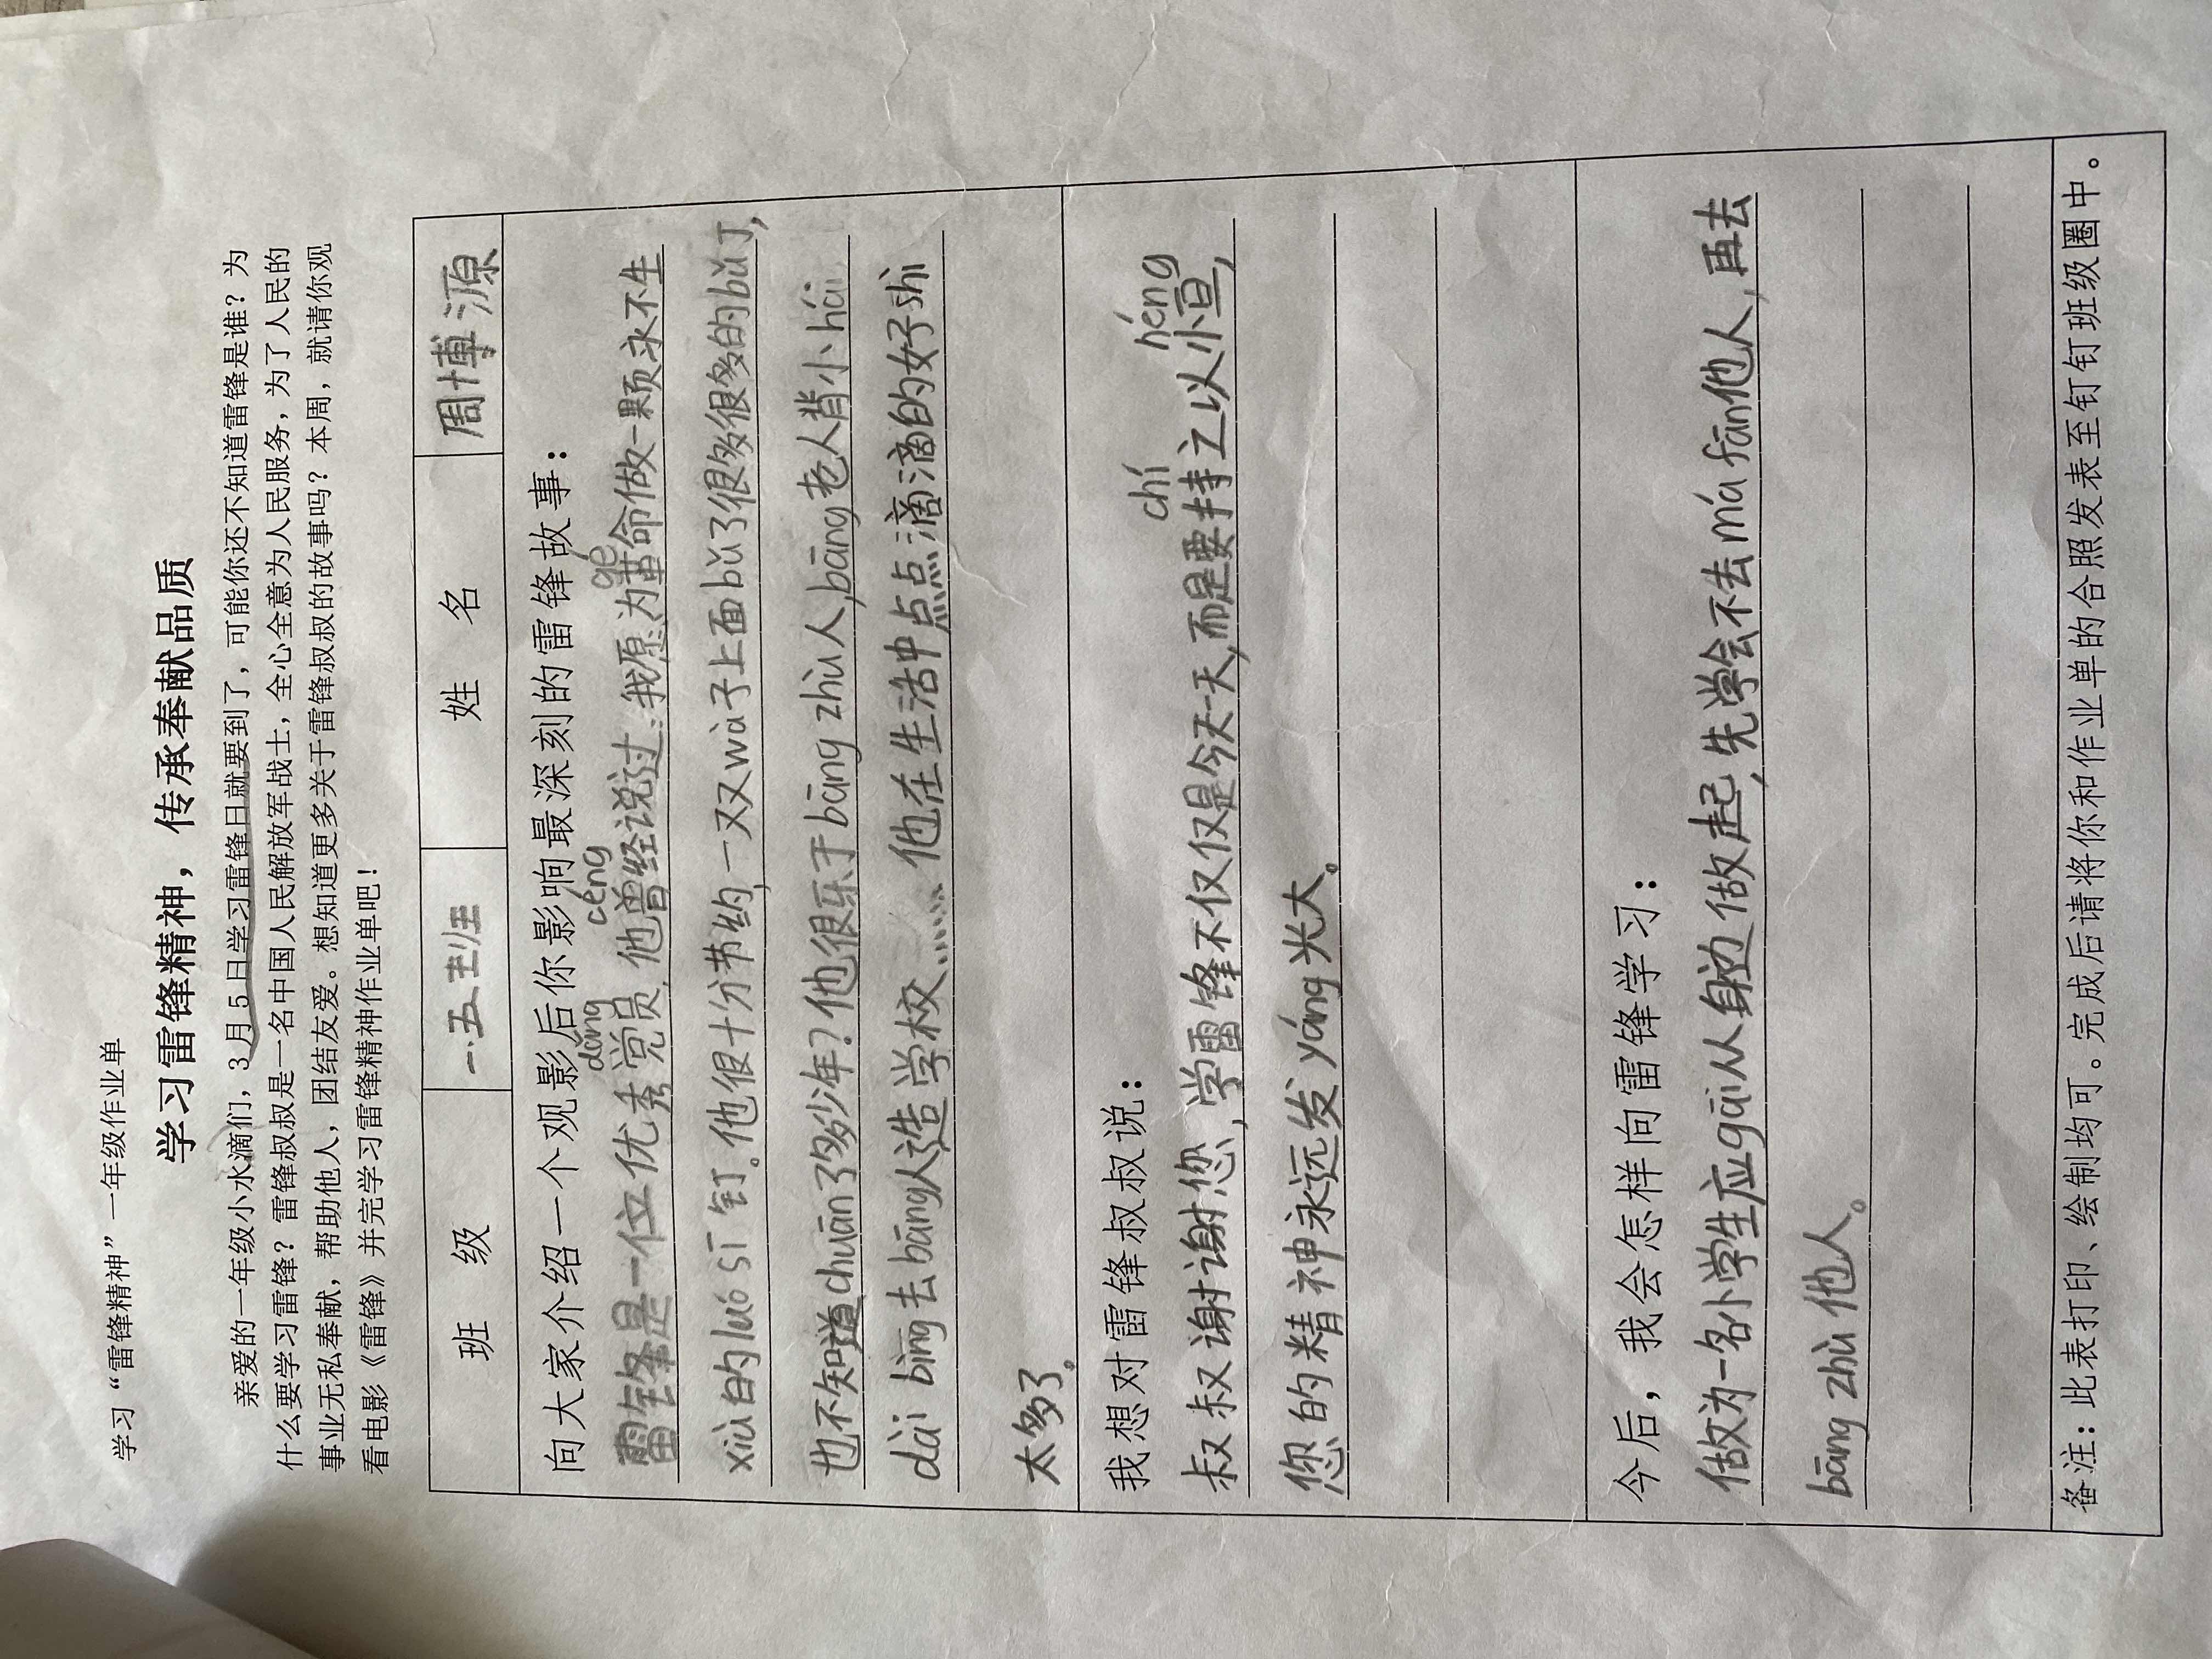 学习“雷锋精神”一年级作业单
学习雷锋精神，传承奉献品质
亲爱的一年级小水滴们，3月5日学习雷锋日就要到了，可能你还不知道雷锋是谁？为
什么要学习雷锋？雷锋叔叔是一名中国人民解放军战士，全心全意为人民服务，为了人民的
事业无私奉献，帮助他人，团结友爱。想知道更多关于雷锋叔叔的故事吗？本周，就请你观
看电影《雷锋》并完学习雷锋精神作业单吧！
班 级 一.五班 姓 名 周博源
向大家介绍一个观影后你影响最深刻的雷锋故事：
dǎng céng gé
雷锋是一位优秀党员，他曾经说过:我愿为革命做一颗永不生
xiù的luó sī钉。他很十分节约,一双wà子上面bǔ了很多很多的bǔ丁,
也不知道chuān了多少年?他很乐于bāng zhù人,bāng老人背小hái
dài bìng去bāng人造学校……他在生活中点点滴滴的好shì
太多了。
我想对雷锋叔叔说：
chí héng
叔叔谢谢您,学雷锋不仅仅是今天一天,而是要持之以恒,
您的精神永远发yáng光大。
今后，我会怎样向雷锋学习：
做为一名小学生应gāi从身边做起,先学会不去má fán他人,再去
bāng zhù他人。
备注：此表打印、绘制均可。完成后请将你和作业单的合照发表至钉钉班级圈中。